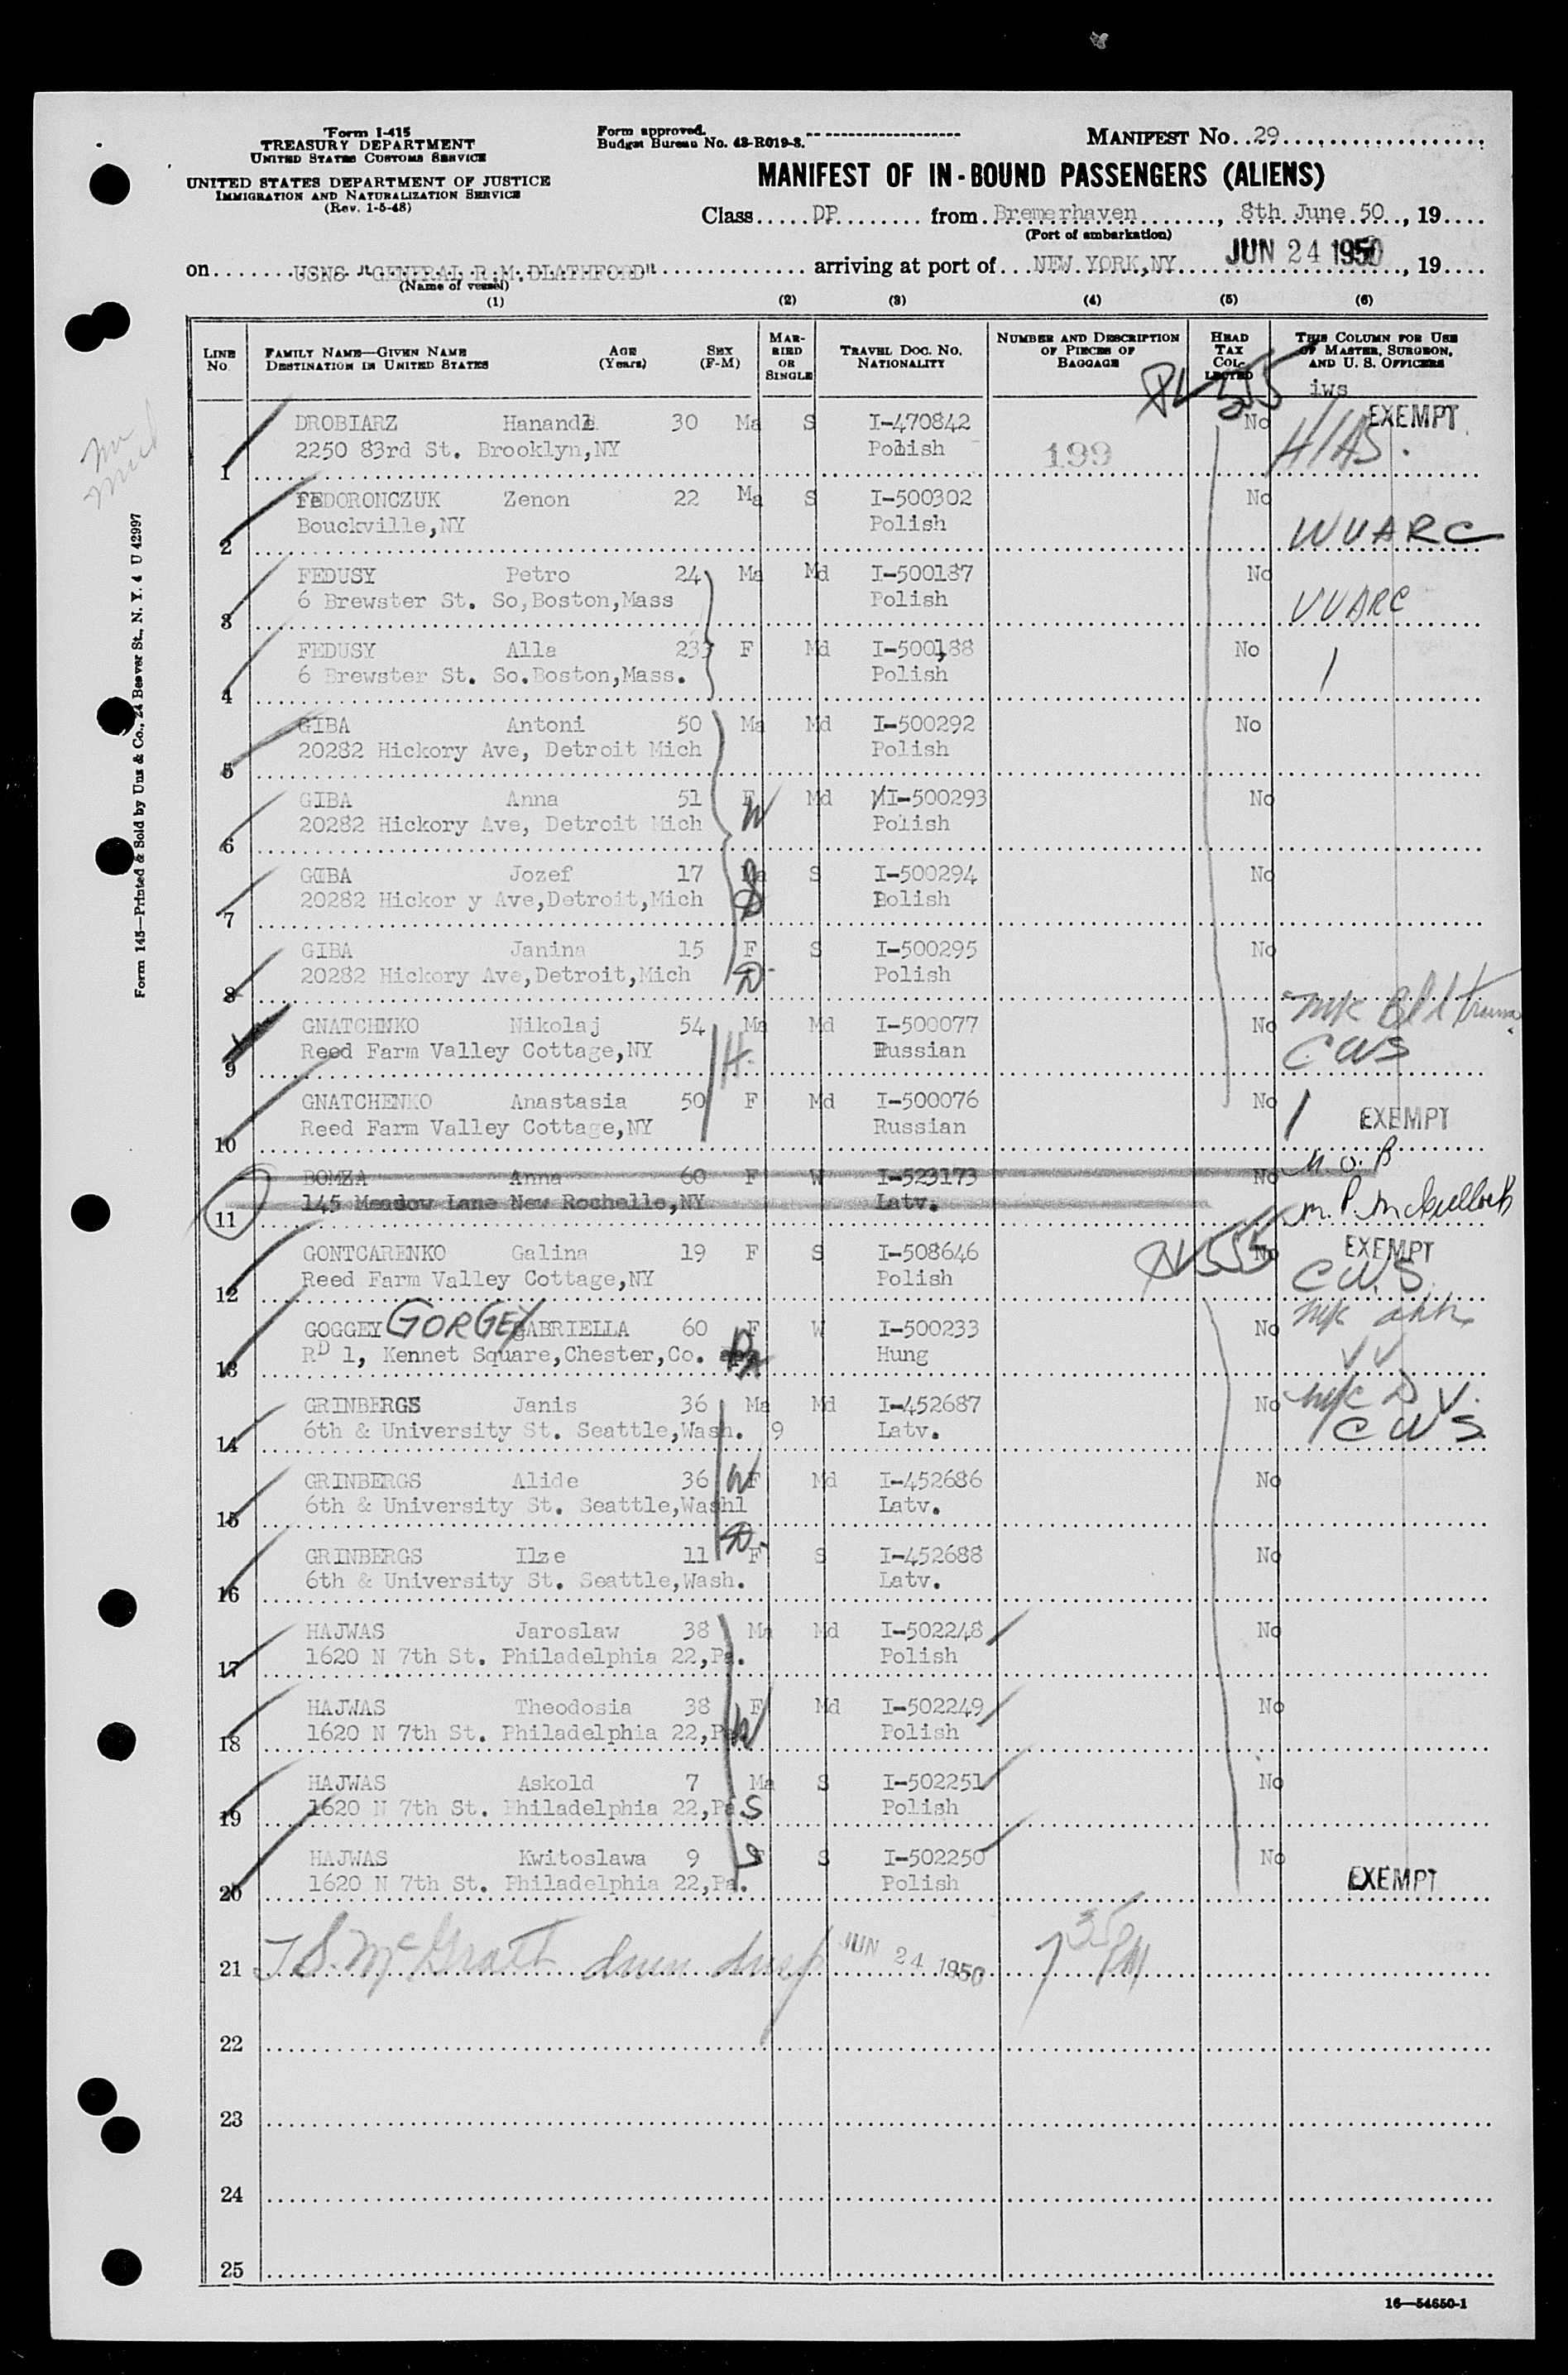 Form I-415
TREASURY DEPARTMENT
UNITED STATES CUSTOMS SERVICE
UNITED STATES DEPARTMENT OF JUSTICE
IMMIGRATION AND NATURALIZATION SERVICE
(Rev. 1-5-48)
Form approved.
Budget Bureau No. 43-R019-3.
MANIFEST No. 29
MANIFEST OF IN-BOUND PASSENGERS (ALIENS)
Class DP from Bremerhaven, 8th June 50, 19
(Port of embarkation)
on USNS "GENERAL R.M. BLATHFORD" arriving at port of NEW YORK, NY JUN 24 1950, 19
(Name of vessel)
(1) (2) (3) (4) (5) (6)
LINE No. FAMILY NAME—GIVEN NAME DESTINATION IN UNITED STATES AGE (Years) SEX (F-M) MARRIED OR SINGLE TRAVEL DOC. NO. NATIONALITY NUMBER AND DESCRIPTION OF PIECES OF BAGGAGE HEAD TAX COLLECTED THIS COLUMN FOR USE OF MASTER, SURGEON, AND U. S. OFFICERS
iws
PL 555
DROBIARZ 30 Ma S I-470842 No EXEMPT
1 2250 83rd St. Brooklyn,NY Polish 199 HIAS.
FEDORONCZUK Zenon 22 Ma S I-500302 No
2 Bouckville,NY Polish WUARC
FEDUSY Petro 24 Ma Md I-500187 No
3 6 Brewster St. So,Boston,Mass Polish UUARC
FEDUSY Alla 23 F Md I-500188 No
4 6 Brewster St. So.Boston,Mass. Polish
GIBA Antoni 50 Ma Md I-500292 No
5 20282 Hickory Ave, Detroit Mich Polish
GIBA Anna 51 F Md I-500293 No
6 20282 Hickory Ave, Detroit Mich W Polish
GIBA Jozef 17 Ma S I-500294 No
7 20282 Hickor y Ave,Detroit,Mich S Polish
GIBA Janina 15 F S I-500295 No
8 20282 Hickory Ave,Detroit,Mich D Polish
GNATCHNKO Nikolaj 54 Ma Md I-500077 No
9 Reed Farm Valley Cottage,NY H. Russian CWS
GNATCHENKO Anastasia 50 F Md I-500076 No EXEMPT
10 Reed Farm Valley Cottage,NY Russian
BOMZA Anna 60 F W I-523173 No
11 145 Meadow Lane New Rochelle,NY Latv. M. P. McCullock
GONTCARENKO Galina 19 F S I-508646 PL 555 No EXEMPT
12 Reed Farm Valley Cottage,NY Polish CWS
GOGGEY GORGEY GABRIELLA 60 F W I-500233 No
13 RD 1, Kennet Square,Chester,Co. Pa Hung
GRINBERGS Janis 36 Ma Md I-452687 No
14 6th & University St. Seattle,Wash. 9 Latv. CWS
GRINBERGS Alide 36 W F Md I-452686 No
15 6th & University St. Seattle,Washl Latv.
GRINBERGS Ilze 11 D. F S I-452688 No
16 6th & University St. Seattle,Wash. Latv.
HAJWAS Jaroslaw 38 Ma Md I-502248 No
17 1620 N 7th St. Philadelphia 22,Pa. Polish
HAJWAS Theodosia 38 F Md I-502249 No
18 1620 N 7th St. Philadelphia 22,Pa W Polish
HAJWAS Askold 7 Ma S I-502251 No
19 1620 N 7th St. Philadelphia 22,Pa S Polish
HAJWAS Kwitoslawa 9 F S I-502250 No
20 1620 N 7th St. Philadelphia 22,Pa. Polish EXEMPT
21 McGrath JUN 24 1950 7 35 PM
22
23
24
25
16—54650-1
Form 145—Printed & Sold by Unz & Co., 24 Beaver St., N. Y. 4 U 42997